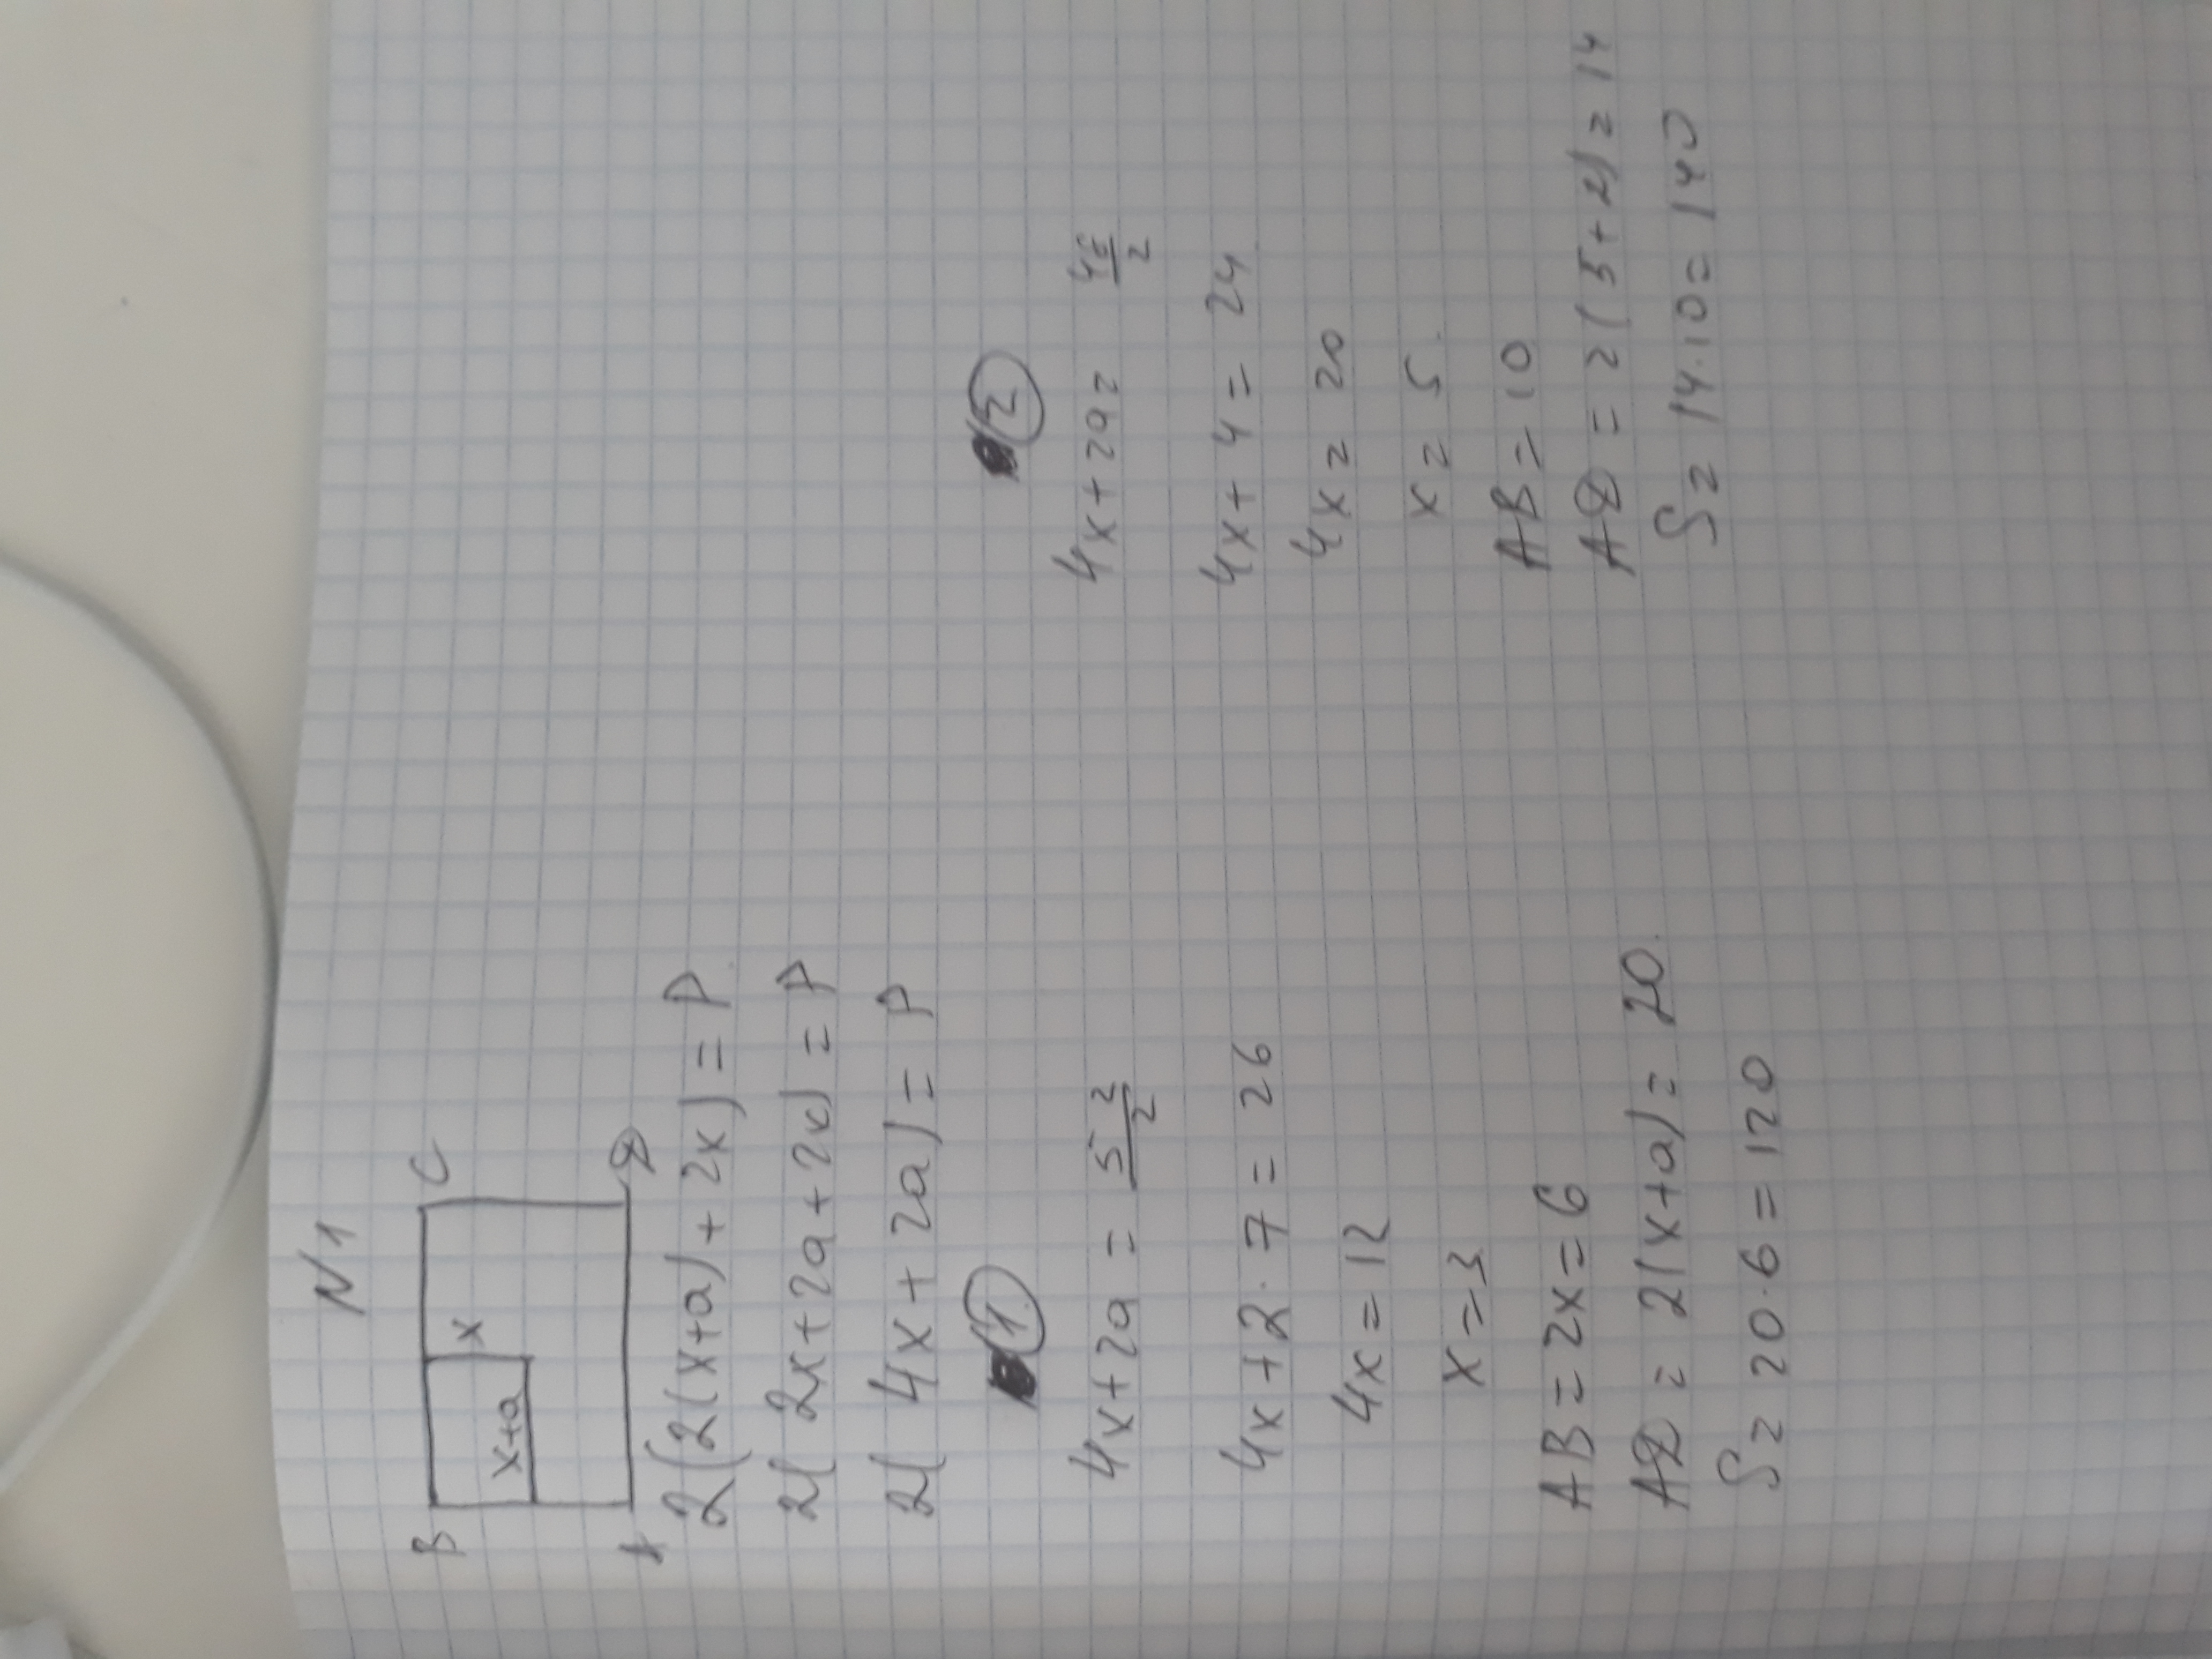 N1
B C
x
x+a
A D
2(2(x+a)+2x)=P
2(2x+2a+2x)=P
2(4x+2a)=P
1
4x+2a=52/2
4x+2·7=26
4x=12
x=3
AB=2x=6
AD=2(x+a)=20.
S=20·6=120
2
4x+2a=48/2
4x+4=24
4x=20
x=5.
AB=10
AD=2(5+2)=14
S=14·10=140